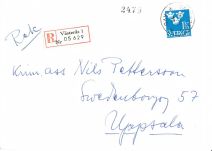 2473
Rek
R
Västerås 1
Nr 05829
SVERIGE
Krim.ass Nils Pettersson
Swedenborgsg 57
Uppsala